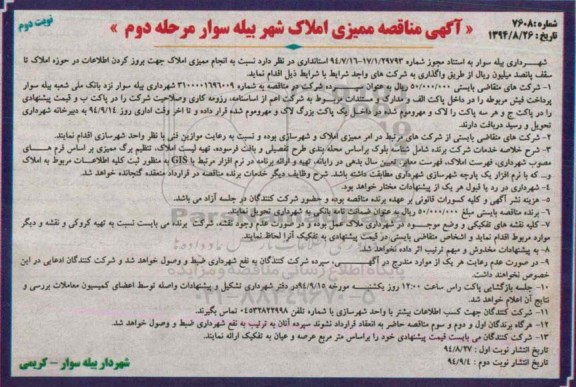 شماره: ۷۶۰۸
تاریخ: ۱۳۹۴/۸/۲۶
« آگهی مناقصه ممیزی املاک شهر بیله سوار مرحله دوم »
نوبت دوم
شهرداری بیله سوار به استناد مجوز شماره ۱۷/۱/۲۹۷۹۳-۹۴/۷/۱۶ استانداری در نظر دارد نسبت به انجام ممیزی املاک جهت بروز کردن اطلاعات در حوزه املاک تا
سقف پانصد میلیون ریال از طریق واگذاری به شرکت های واجد شرایط با شرایط ذیل اقدام نماید.
۱- شرکت های متقاضی بایستی ۵۰/۰۰۰/۰۰۰ ریال به عنوان سپرده شرکت در مناقصه به شماره ۳۱۰۰۰۰۱۶۹۶۰۰۹ شهرداری بیله سوار نزد بانک ملی شعبه بیله سوار
پرداخت فیش مربوطه را در داخل پاکت الف و مدارک و مستندات مربوط به شرکت اعم از اساسنامه، رزومه کاری وصلاحیت شرکت را در پاکت ب و قیمت پیشنهادی
را در پاکت ج و هر سه پاکت را لاک و مهروموم شده در داخل یک پاکت بزرگ لاک و مهروموم شده قرار داده و تا آخر وقت اداری روز ۹۴/۹/۱۴ به دبیرخانه شهرداری
تحویل و رسید دریافت دارند.
۲- شرکت های متقاضی بایستی از شرکت های مرتبط در امر ممیزی املاک و شهرسازی بوده و نسبت به رعایت موازین فنی با نظر واحد شهرسازی اقدام نمایند.
۳- شرح خلاصه خدمات شرکت برنده شامل شیت بلوک براساس محله بندی طرح تفصیلی و بافت فرسوده، تهیه لیست املاک، تنظیم برگ ممیزی بر اساس فرم های
مصوب شهرداری، فهرست املاک، فهرست معابر، تعیین سال بدهی در رایانه، تهیه و ارائه برنامه در نرم افزار مرتبط با GIS به منظور ثبت کلیه اطلاعات مربوط به املاک
و... که با نرم افزار یک پارچه شهرسازی شهرداری مطابقت داشته باشد. شرح وظایف دیگر خدمات برنده مناقصه در قرارداد منعقده گنجانده خواهد شد.
۴- شهرداری در رد یا قبول هر یک از پیشنهادات مختار خواهد بود.
۵- هزینه نشر آگهی و کلیه کسورات قانونی بر عهده برنده مناقصه بوده و حضور شرکت کنندگان در جلسه آزاد می باشد.
۶- برنده مناقصه بایستی مبلغ ۵۰/۰۰۰/۰۰۰ ریال به عنوان ضمانت نامه بانکی به شهرداری تحویل نمایند.
۷- کلیه نقشه های تفکیکی و وضع موجود در شهرداری ملاک عمل بوده و در صورت عدم وجود نقشه، شرکت برنده می بایست نسبت به تهیه کروکی و نقشه و دیگر
موارد مربوط اقدام نماید و اشخاص متقاضی بایستی در قیمت پیشنهادی به تفکیک آنرا لحاظ نمایند.
۸- به پیشنهادات مخدوش و مبهم ترتیب اثر داده نخواهد شد.
۹- در صورت عدم رعایت هر یک از موارد مندرج در آگهی، سپرده شرکت کنندگان به نفع شهرداری ضبط و وصول خواهد شد و شرکت کنندگان ادعایی در این
خصوص نخواهند داشت.
۱۰- جلسه بازگشایی پاکت راس ساعت ۱۲:۰۰ روز یکشنبه مورخه ۹۴/۹/۱۵ در دفتر شهرداری تشکیل و پیشنهادات واصله توسط اعضای کمیسیون معاملات بررسی و
نتایج آن اعلام خواهد شد.
۱۱- شرکت کنندگان جهت کسب اطلاعات بیشتر با واحد شهرسازی با شماره تلفن ۰۴۵۳۲۸۲۲۹۹۸ تماس بگیرند.
۱۲- هرگاه برندگان اول و دوم و سوم مناقصه حاضر به انعقاد قرارداد نشوند سپرده آنان به ترتیب به نفع شهرداری ضبط و وصول خواهد شد.
۱۳- شرکت کنندگان می بایست قیمت پیشنهادی خود را براساس متر مربع عرصه و عیان به تفکیک ارائه نمایند.
تاریخ انتشار نوبت اول: ۹۴/۸/۲۷
تاریخ انتشار نوبت دوم: ۹۴/۹/۴
شهردار بیله سوار - کریمی